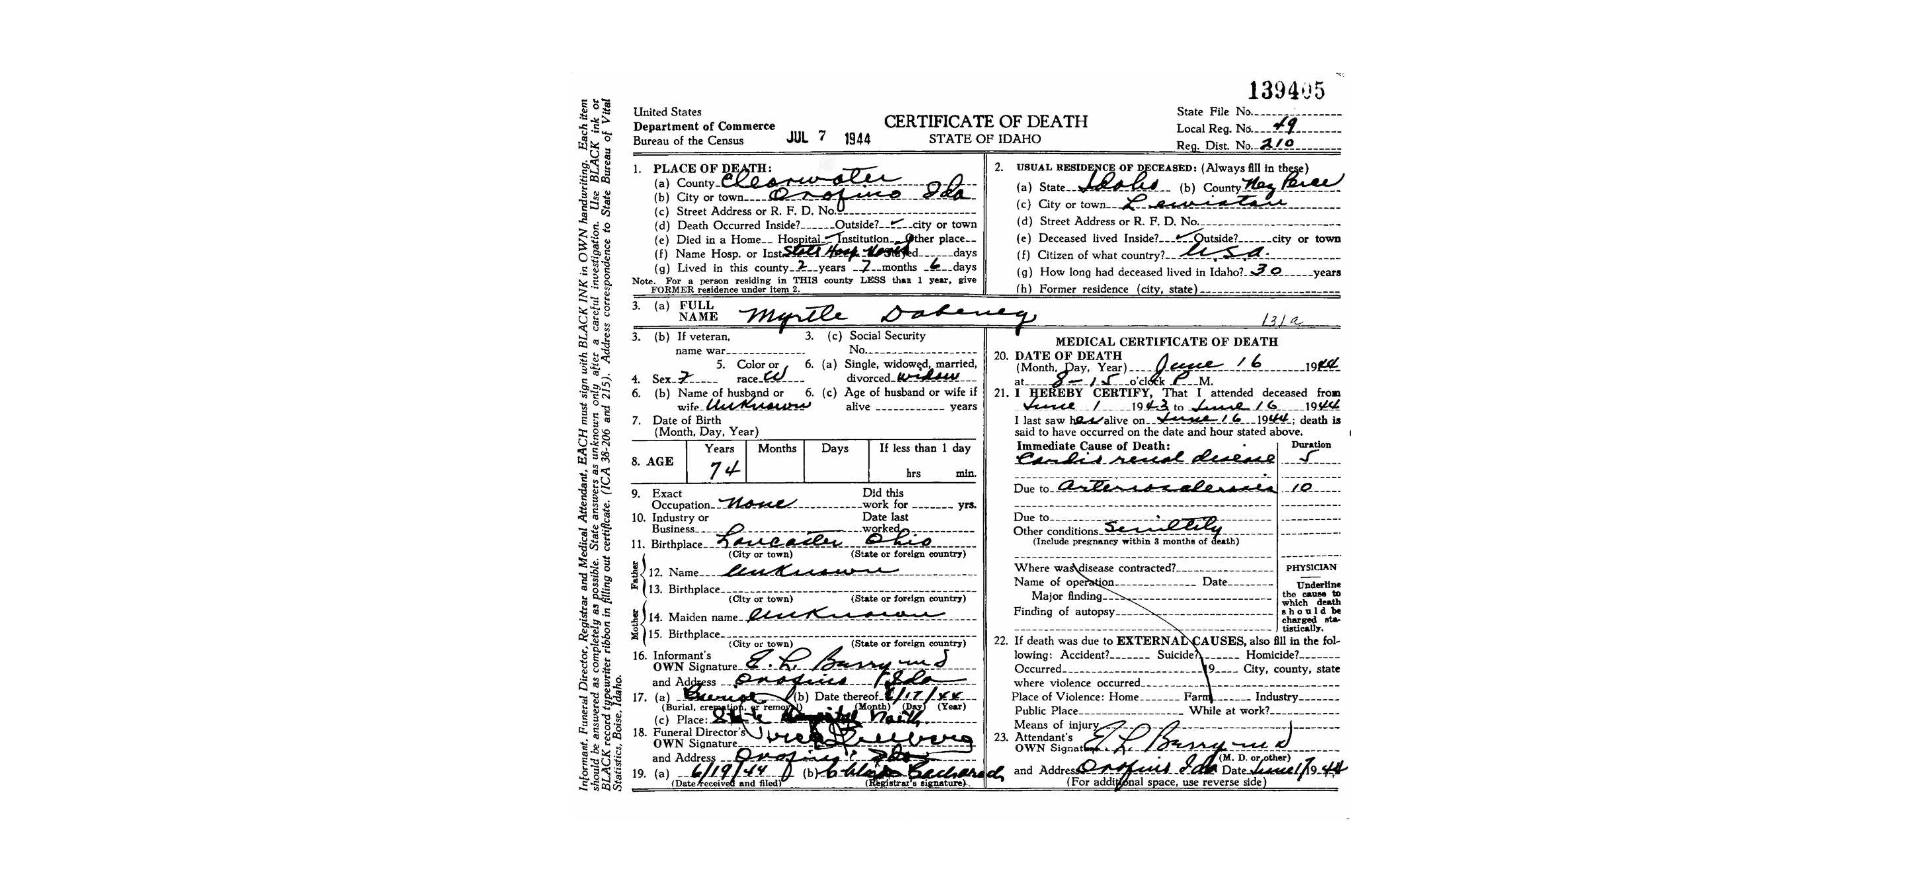 139405
United States
Department of Commerce
Bureau of the Census
JUL 7 1944
CERTIFICATE OF DEATH
STATE OF IDAHO
State File No.
Local Reg. No. 49
Reg. Dist. No. 210
Informant, Funeral Director, Registrar and Medical Attendant, EACH must sign with BLACK INK in OWN handwriting. Each item
should be answered as completely as possible. State answers as unknown only after a careful investigation. Use BLACK ink or
BLACK record typewriter ribbon in filling out certificate. (ICA 38-206 and 215). Address correspondence to State Bureau of Vital
Statistics, Boise, Idaho.
1. PLACE OF DEATH:
(a) County Clearwater
(b) City or town Orofino Ida
(c) Street Address or R. F. D. No.
(d) Death Occurred Inside? Outside? ✓ city or town
(e) Died in a Home Hospital ✓ Institution Other place
(f) Name Hosp. or Inst. State Hosp. North days
(g) Lived in this county 2 years 7 months 6 days
Note. For a person residing in THIS county LESS than 1 year, give
FORMER residence under item 2.
2. USUAL RESIDENCE OF DECEASED: (Always fill in these)
(a) State Idaho (b) County Nez Perce
(c) City or town Lewiston
(d) Street Address or R. F. D. No.
(e) Deceased lived Inside? ✓ Outside? city or town
(f) Citizen of what country? U.S.A.
(g) How long had deceased lived in Idaho? 30 years
(h) Former residence (city, state)
3. (a) FULL
NAME Myrtle Dabeney
131a
3. (b) If veteran,
name war
3. (c) Social Security
No.
4. Sex F
5. Color or
race W
6. (a) Single, widowed, married,
divorced widow
6. (b) Name of husband or
wife Unknown
6. (c) Age of husband or wife if
alive years
7. Date of Birth
(Month, Day, Year)
8. AGE
Years Months Days If less than 1 day
74 hrs min.
9. Exact
Occupation None
Did this
work for yrs.
10. Industry or
Business
Date last
worked
11. Birthplace Lancaster Ohio
(City or town) (State or foreign country)
Father
12. Name Unknown
13. Birthplace
(City or town) (State or foreign country)
Mother
14. Maiden name Unknown
15. Birthplace
(City or town) (State or foreign country)
16. Informant's
OWN Signature E. L. Barry M D
and Address Orofino Ida
17. (a) (b) Date thereof 6/17/44
(Burial, cremation, or removal) (Month) (Day) (Year)
(c) Place: State Hospital North
18. Funeral Director's
OWN Signature
and Address Orofino Ida
19. (a) 6/19/44 (b)
(Date received and filed) (Registrar's signature)
MEDICAL CERTIFICATE OF DEATH
20. DATE OF DEATH
(Month, Day, Year) June 16 1944
at 8-15 o'clock P M.
21. I HEREBY CERTIFY, That I attended deceased from
June 1 1943 to June 16 1944
I last saw her alive on June 16 1944; death is
said to have occurred on the date and hour stated above.
Immediate Cause of Death: Duration
Cardio renal disease 5
Due to Arteriosclerosis 10
Due to
Other conditions Senility
(Include pregnancy within 3 months of death)
Where was disease contracted?
Name of operation Date
Major finding
Finding of autopsy
PHYSICIAN
Underline
the cause to
which death
should be
charged sta-
tistically.
22. If death was due to EXTERNAL CAUSES, also fill in the fol-
lowing: Accident? Suicide? Homicide?
Occurred 19 City, county, state
where violence occurred
Place of Violence: Home Farm Industry
Public Place While at work?
Means of injury
23. Attendant's
OWN Signature E L Barry M D
(M. D. or other)
and Address Orofino Ida Date June 17 1944
(For additional space, use reverse side)